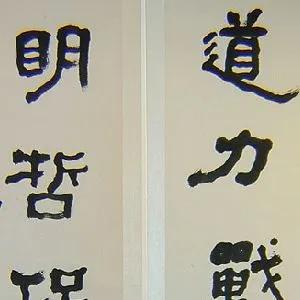 道力戰
明哲保